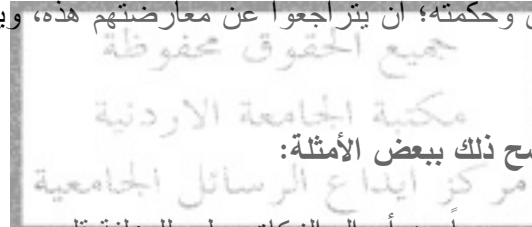 وحكمته؛ ان يتراجعوا عن معارضتهم هذه،
جميع الحقوق محفوظة
مكتبة الجامعة الاردنية
ذلك ببعض الأمثلة:
مركز ايداع الرسائل الجامعية